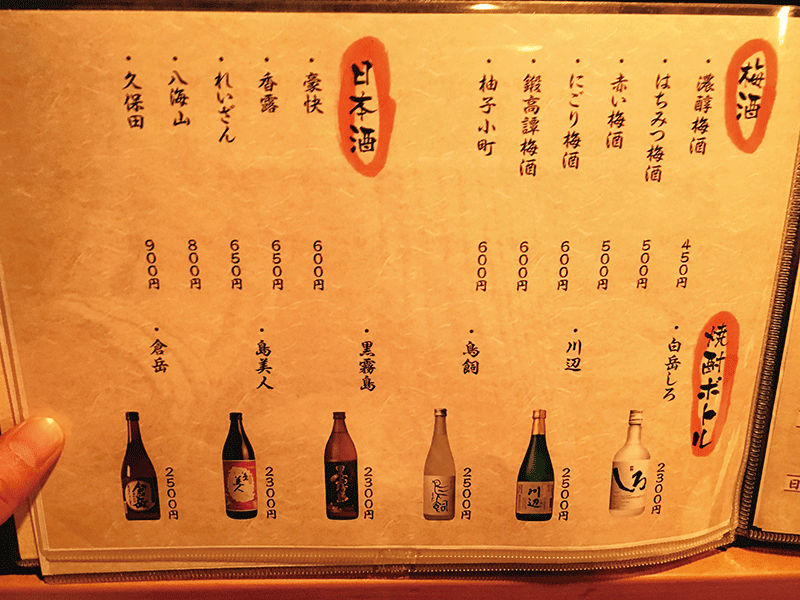 梅酒
・濃醇梅酒 450円
・はちみつ梅酒 500円
・赤い梅酒 500円
・にごり梅酒 600円
・鍛高譚梅酒 600円
・柚子小町 600円
日本酒
・豪快 600円
・香露 650円
・れいざん 650円
・八海山 800円
・久保田 900円
焼酎ボトル
・白岳しろ
しろ
2300円
・川辺
川辺
2500円
・鳥飼
鳥飼
2500円
・黒霧島
黒霧島
2300円
・島美人
島美人
2300円
・倉岳
倉岳
2500円
日